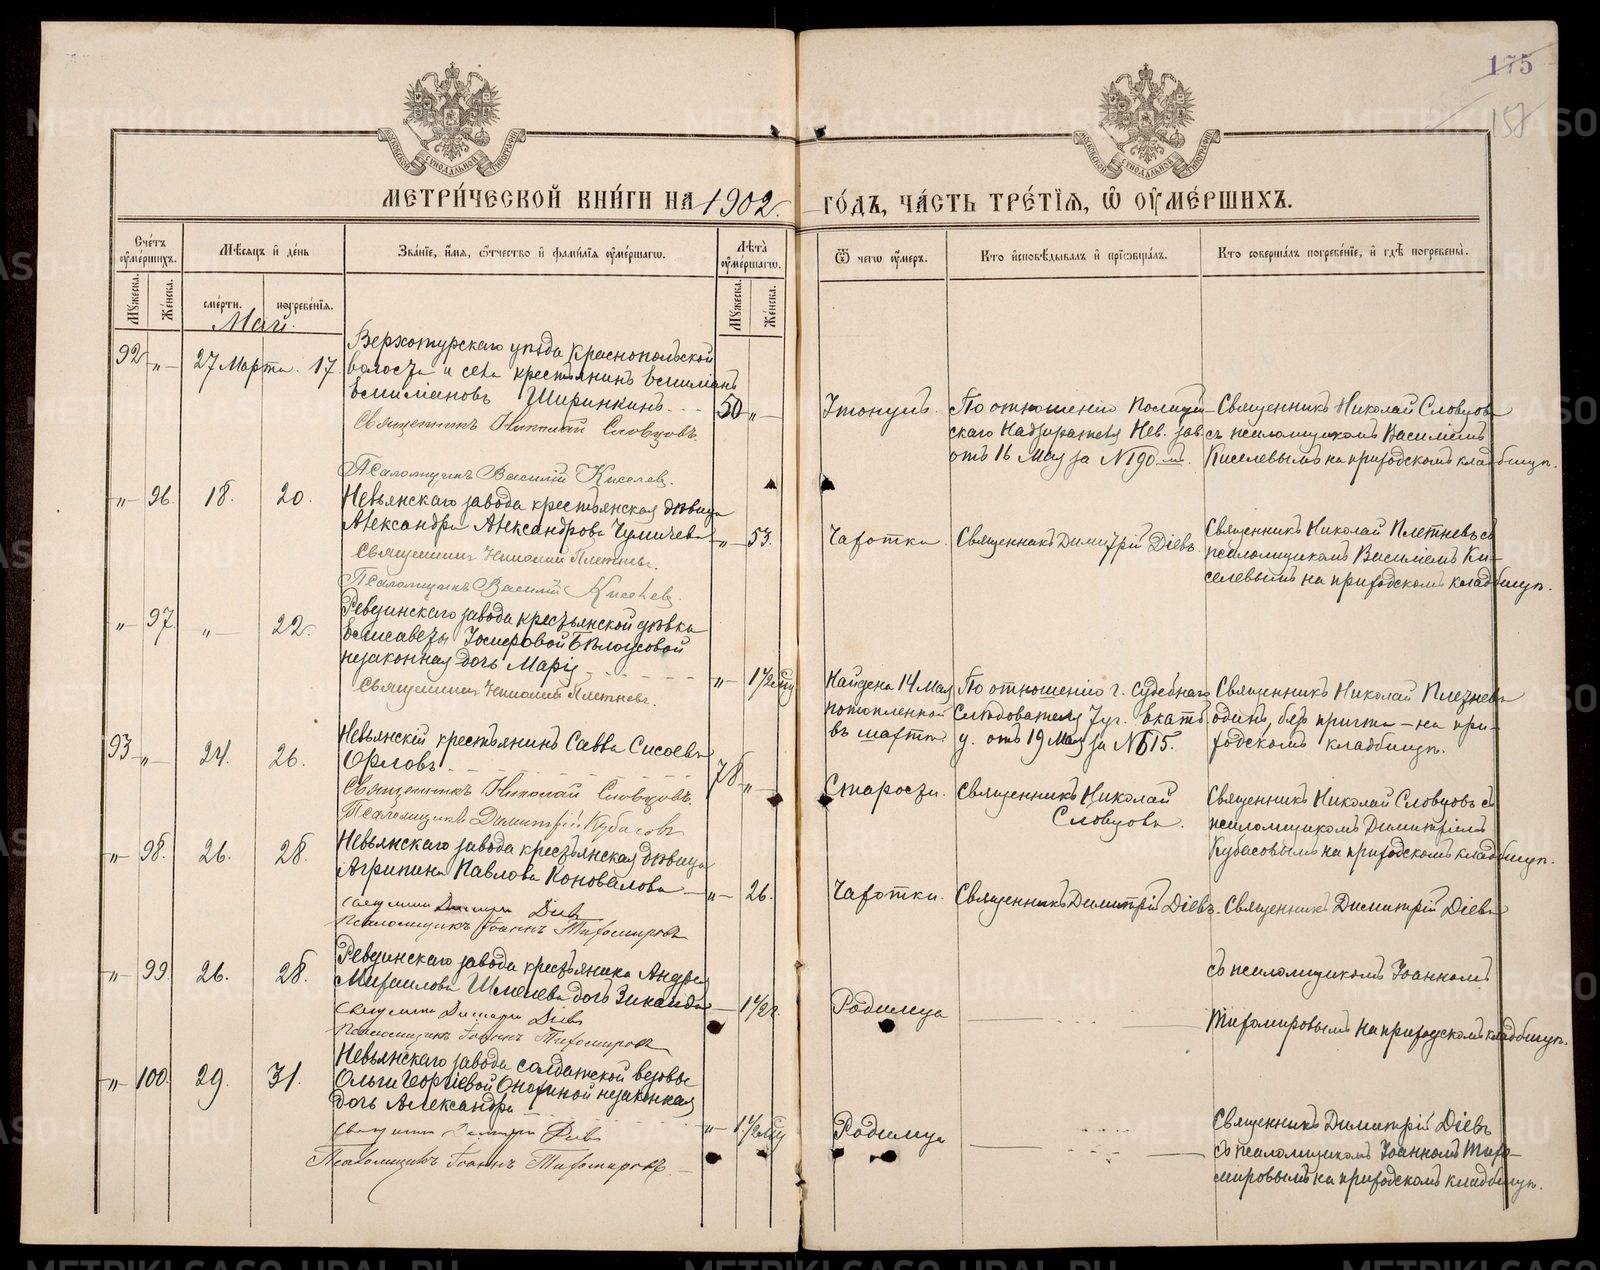 175
158
МЕТРИ́ЧЕСКОЙ КНИ́ГИ НА 1902. ГО́ДЪ, ЧА́СТЬ ТРЕ́ТІѦ, Ѡ҆ ОУ҆МЕ́РШИХЪ.
Сче́тъ оу҆ме́ршихъ.
Мѣ́сѧцъ и҆ де́нь
Зва́нїе, и҆́мѧ, ѻ҆́тчество и҆ фами́лїѧ оу҆ме́ршагѡ.
Лѣ́та оу҆ме́ршагѡ.
Ѿ чегѡ̀ оу҆́меръ.
Кто̀ и҆сповѣ́дывалъ и҆ прїѡбща́лъ.
Кто̀ соверша́лъ погребе́нїе, и҆ гдѣ̀ погребены̀.
Мꙋ́жеска.
Же́нска.
сме́рти.
погребе́нїѧ.
Мꙋ́жеска.
Же́нска.
Май.
92 „ — 27 Марта. 17.
Верхотурскаго уѣзда Краснопольской
волости и села крестьянинъ
Ширинкинъ.
50 „ —
Священникъ Николай Словцовъ.
Псаломщикъ Василій Киселев.
Утонулъ.
По отношенію Полицей-
скаго Надзирателя Нев. зав.
отъ 16 Мая за № 190 —.
Священникъ Николай Словцовъ
съ псаломщикомъ Василіемъ
Киселевымъ на приходскомъ кладбищѣ.
„ — 96. 18. 20.
Невьянскаго завода крестьянская дѣвица
Александра Александрова Чумичева
„ — 53.
Священник Николай Плетнев.
Псаломщикъ Василій Киселев.
Чахотки.
Священникъ Димитрій Діевъ.
Священникъ Николай Плетневъ съ
псаломщикомъ Василіемъ Ки-
селевымъ на приходскомъ кладбищѣ.
„ — 97. „ — 22.
Ревдинскаго завода крестьянской дѣвки
Елисаветы Іосифовой Бѣлоусовой
незаконная дочь Марія
„ — 1½
Священник Николай Плетнев.
Найдена 14 Мая
потопленной
въ мартѣ.
По отношенію г. Судебнаго
Слѣдователя 7 уч. Екатб.
у. отъ 19 Мая за № 615.
Священникъ Николай Плетневъ
одинъ, безъ причта — на при-
ходскомъ кладбищѣ.
93 „ — 24. 26.
Невьянскій крестьянинъ Савва Сисоевъ
Орловъ
78 „ —
Священникъ Николай Словцовъ.
Псаломщикъ Димитрій Кубасовъ
Старости.
Священникъ Николай
Словцовъ.
Священникъ Николай Словцовъ съ
псаломщикомъ Димитріемъ
Кубасовымъ на приходскомъ кладбищѣ.
„ — 98. 26. 28.
Невьянскаго завода крестьянская дѣвица
Агрипина Павлова Коновалова
„ — 26.
Священник Димитрій Діевъ
Псаломщикъ Іоаннъ Тихомировъ
Чахотки.
Священникъ Димитрій Діевъ.
Священникъ Димитрій Діевъ
съ псаломщикомъ Іоанномъ
Тихомировымъ на приходскомъ кладбищѣ.
„ — 99. 26. 28.
Ревдинскаго завода крестьянина Андрея
Михаилова Шмелева дочь Зинаида
— 1½ г.
Священник Димитрій Діевъ
Псаломщикъ Іоаннъ Тихомировъ
Родимца
„ — 100. 29. 31.
Невьянскаго завода солдатской вдовы
Ольги Георгіевой незаконная
дочь Александра
„ — 1½
Священник Димитрій Діевъ
Псаломщикъ Іоаннъ Тихомировъ.
Родимца
Священникъ Димитрій Діевъ
съ псаломщикомъ Іоанномъ Тихо-
мировымъ на приходскомъ кладбищѣ.
METRIKI.GASO-URAL.RU